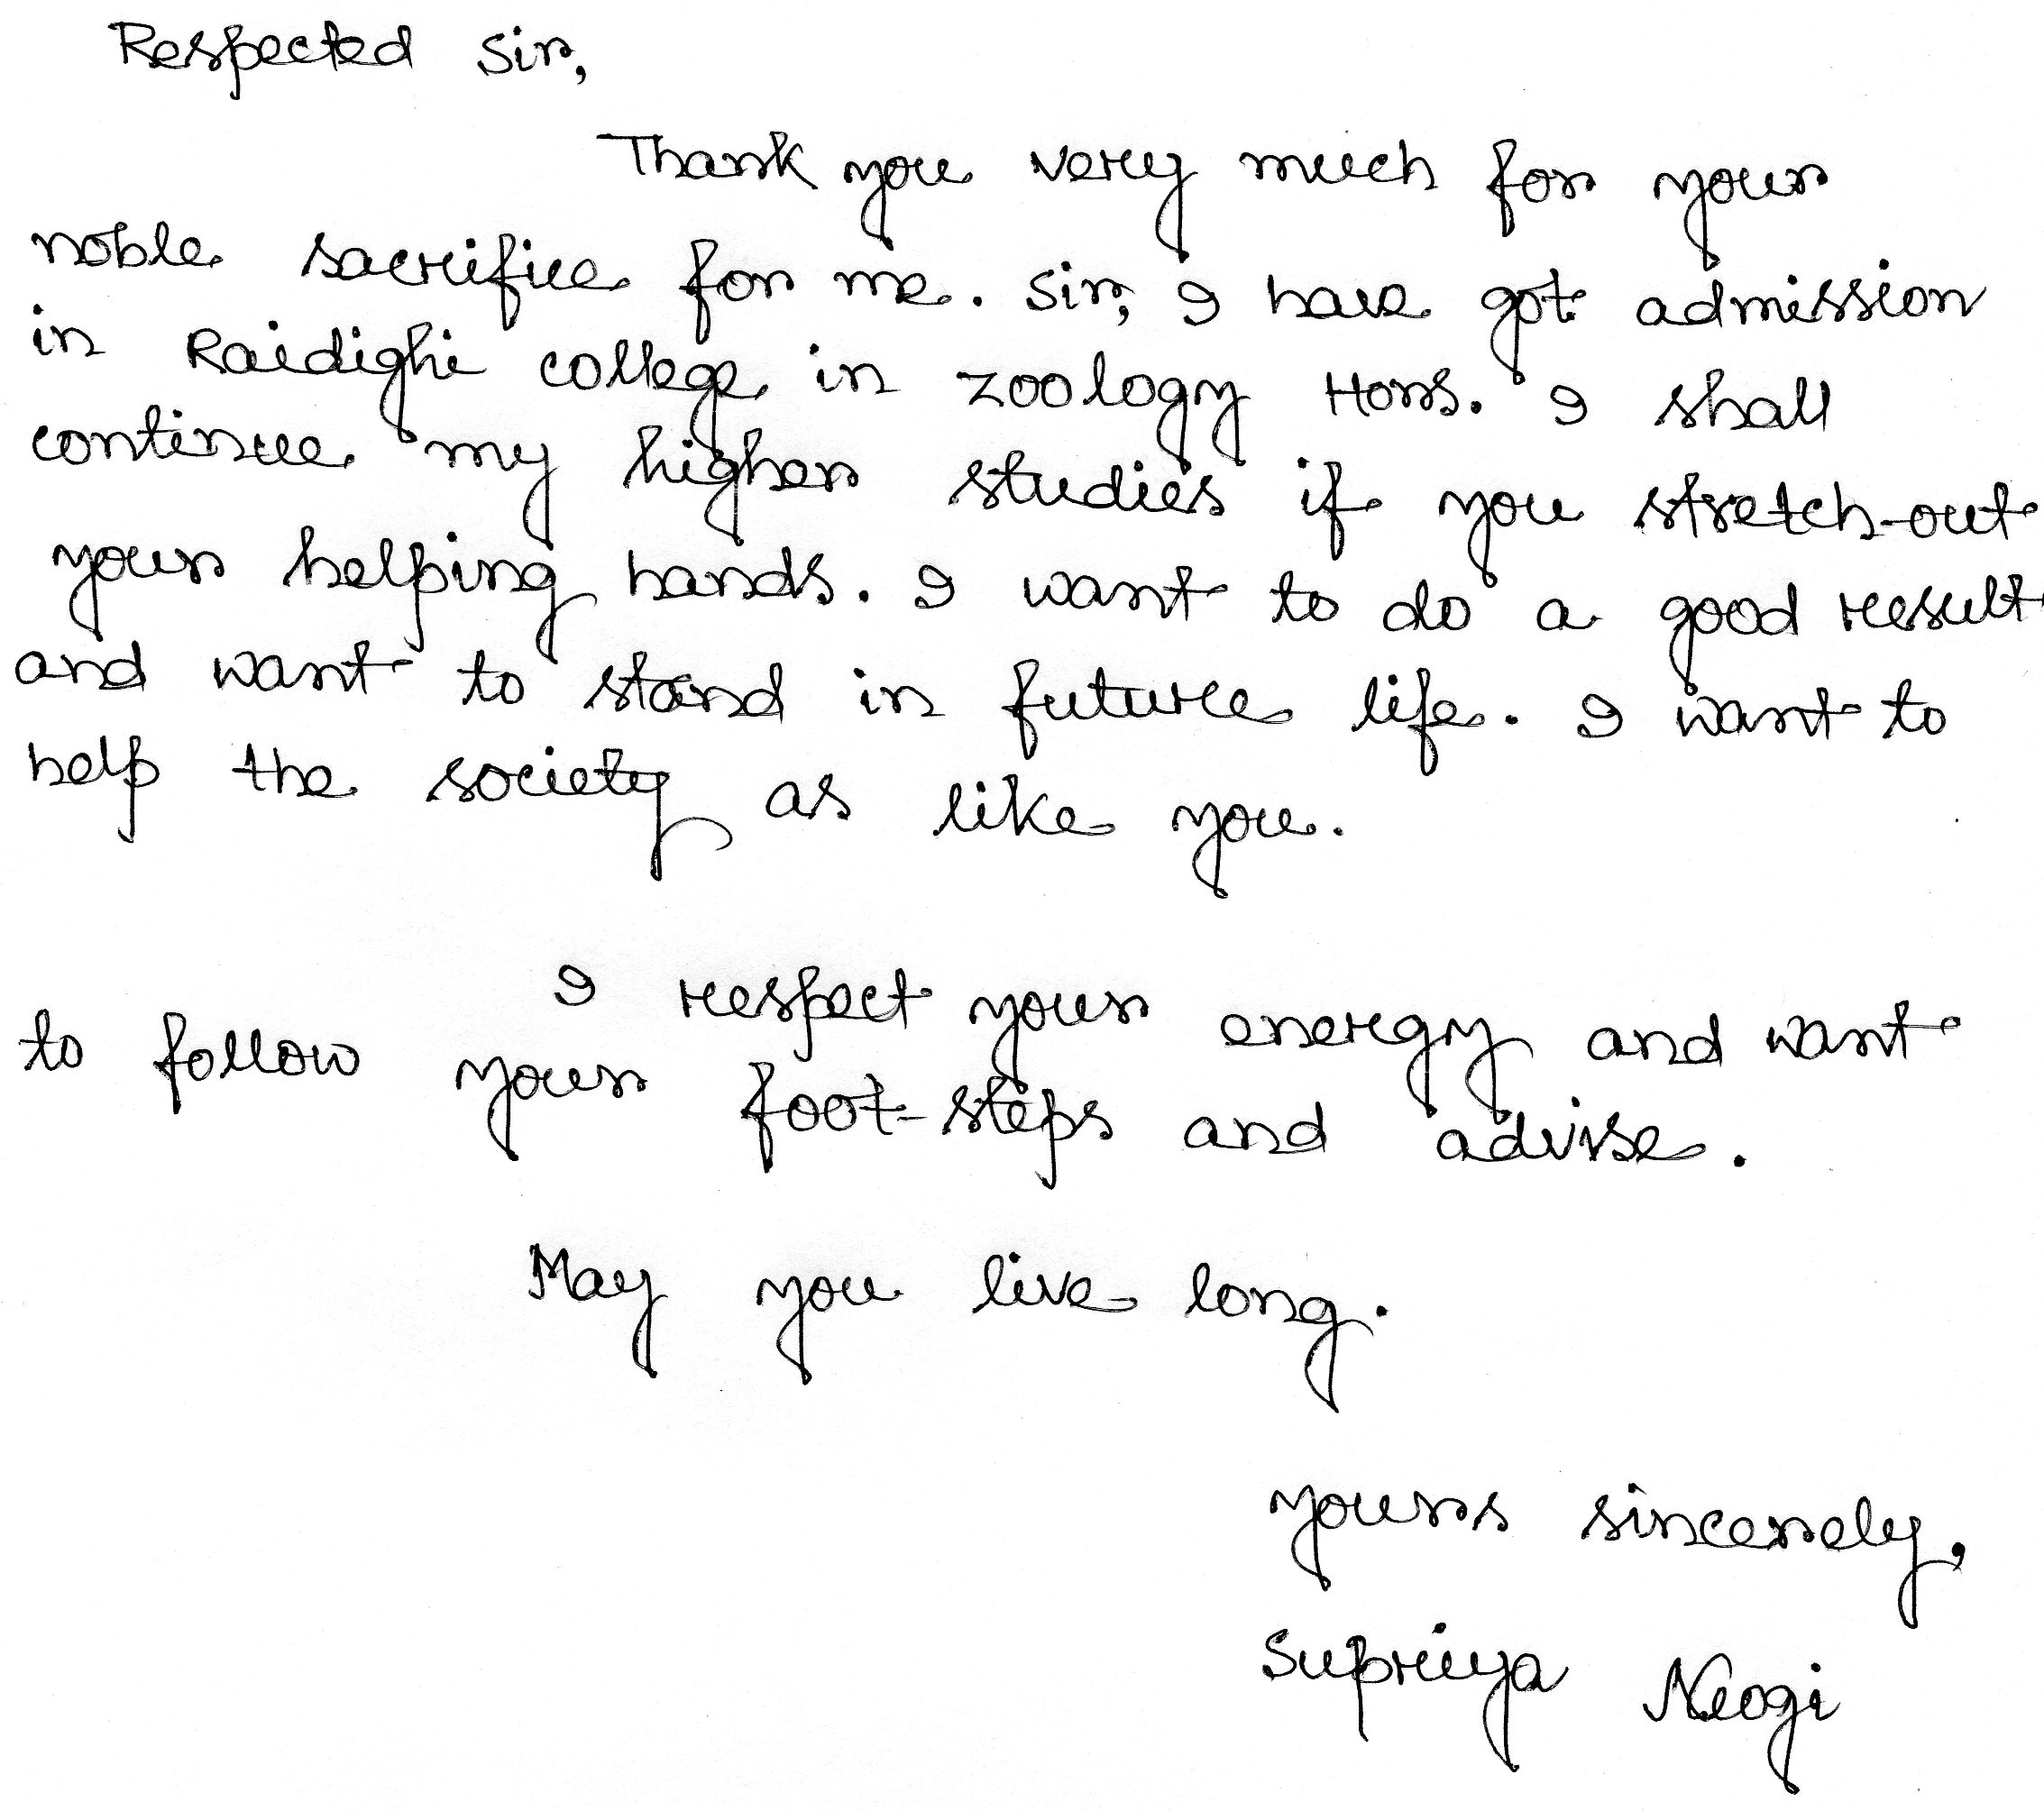 Respected Sir,
Thank you very much for your
noble sacrifice for me. Sir, I have got admission
in Raidighi college in zoology Hons. I shall
continue my higher studies if you stretch-out
your helping hands. I want to do a good result
and want to stand in future life. I want to
help the society as like you.
I respect your energy and want
to follow your foot-steps and advise.
May you live long.
yours sincerely,
Supriya Neogi